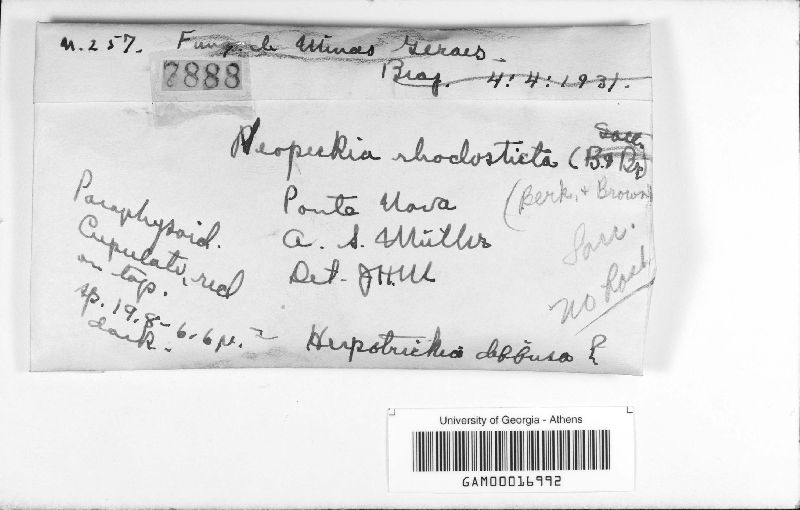 n. 257. Fung. de Minas Geraes.
7888
Braz. 4:4:1931.
Neopeckia rhodosticta (B. & Br.)
Sacc.
(Berk. & Brown)
Sacc.
Ponte Nova
A. S. Müller
Det. JHM
Paraphysoid.
Cupulate, red
on top.
sp. 19.8-6.6µ.
dark.
Herpotrichia diffusa
University of Georgia - Athens
GAM00016992